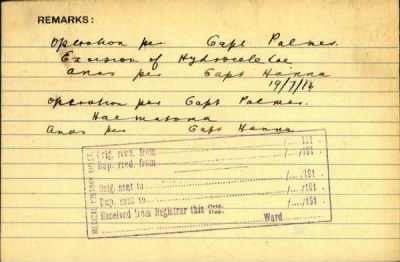 REMARKS:
Operation per Capt Palmer.
Excision of Hydrocele Lee
Anas per Capt Hanna
19/7/16
Operation per Capt Palmer.
Haematoma
Anas per Capt Hanna
MEDICAL HISTORY SHEET
Orig. recd. from ....../..../191 .
Dup. recd. from ....../..../191 .
Orig. sent to ....../..../191 .
Dup. sent to ....../..../191 .
Received from Registrar this Orig. Dup. ....../..../191 .
Ward